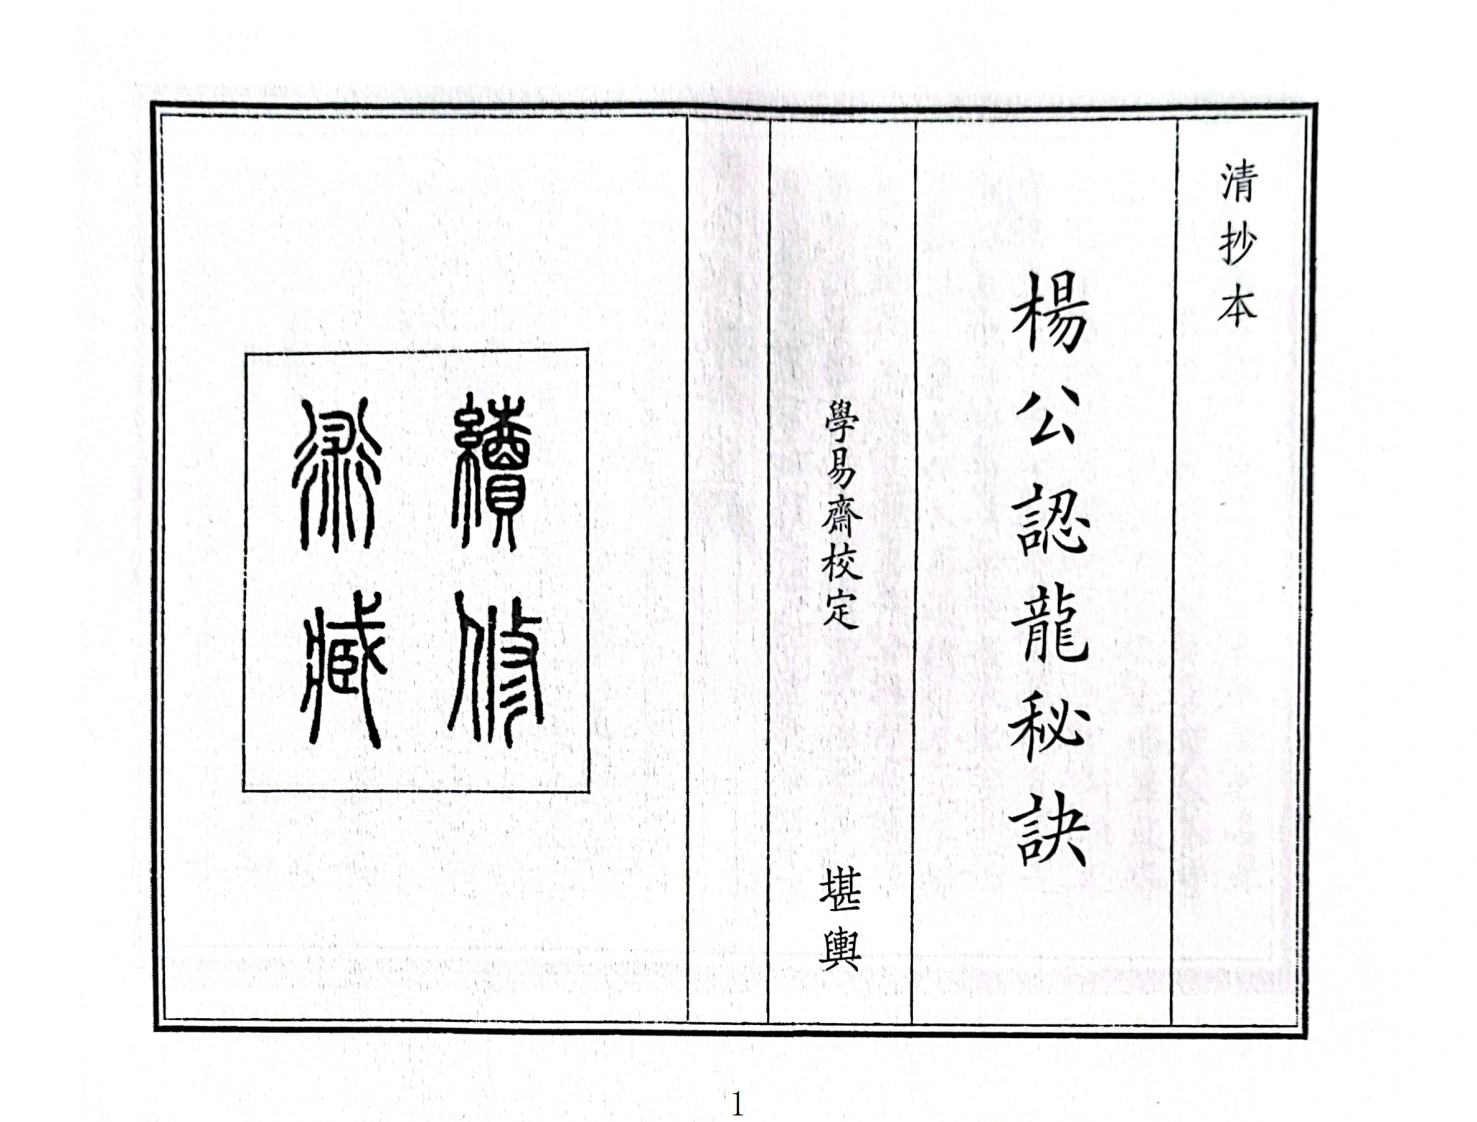 清抄本
楊公認龍秘訣
學易齋校定
堪輿
續修
術臧
1